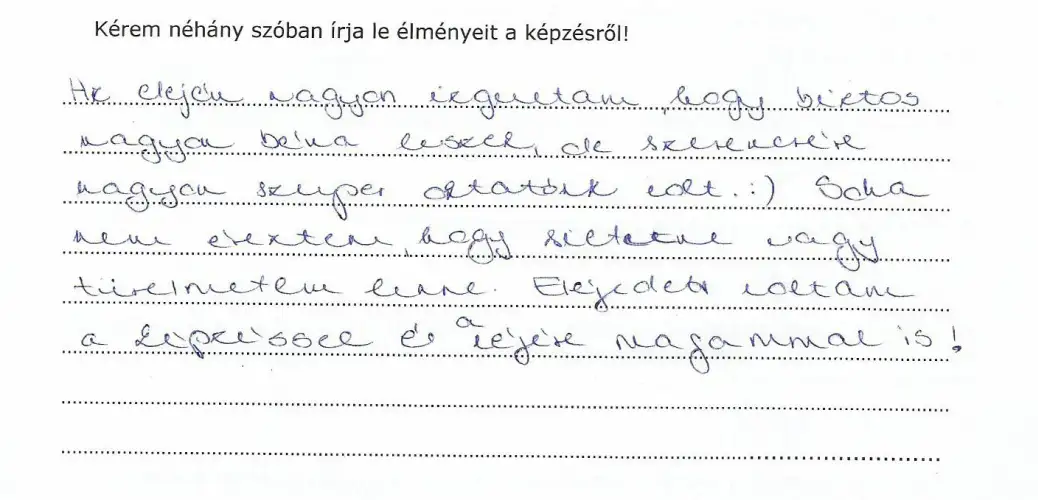 Kérem néhány szóban írja le élményeit a képzésről!
Az elején nagyon izgultam, hogy biztos
nagyon béna leszek, de szerencsére
nagyon szuper oktatónk volt. :) Soha
nem éreztem, hogy sietetne vagy
türelmetlen lenne. Elégedett voltam
a képzéssel és a végére magammal is!